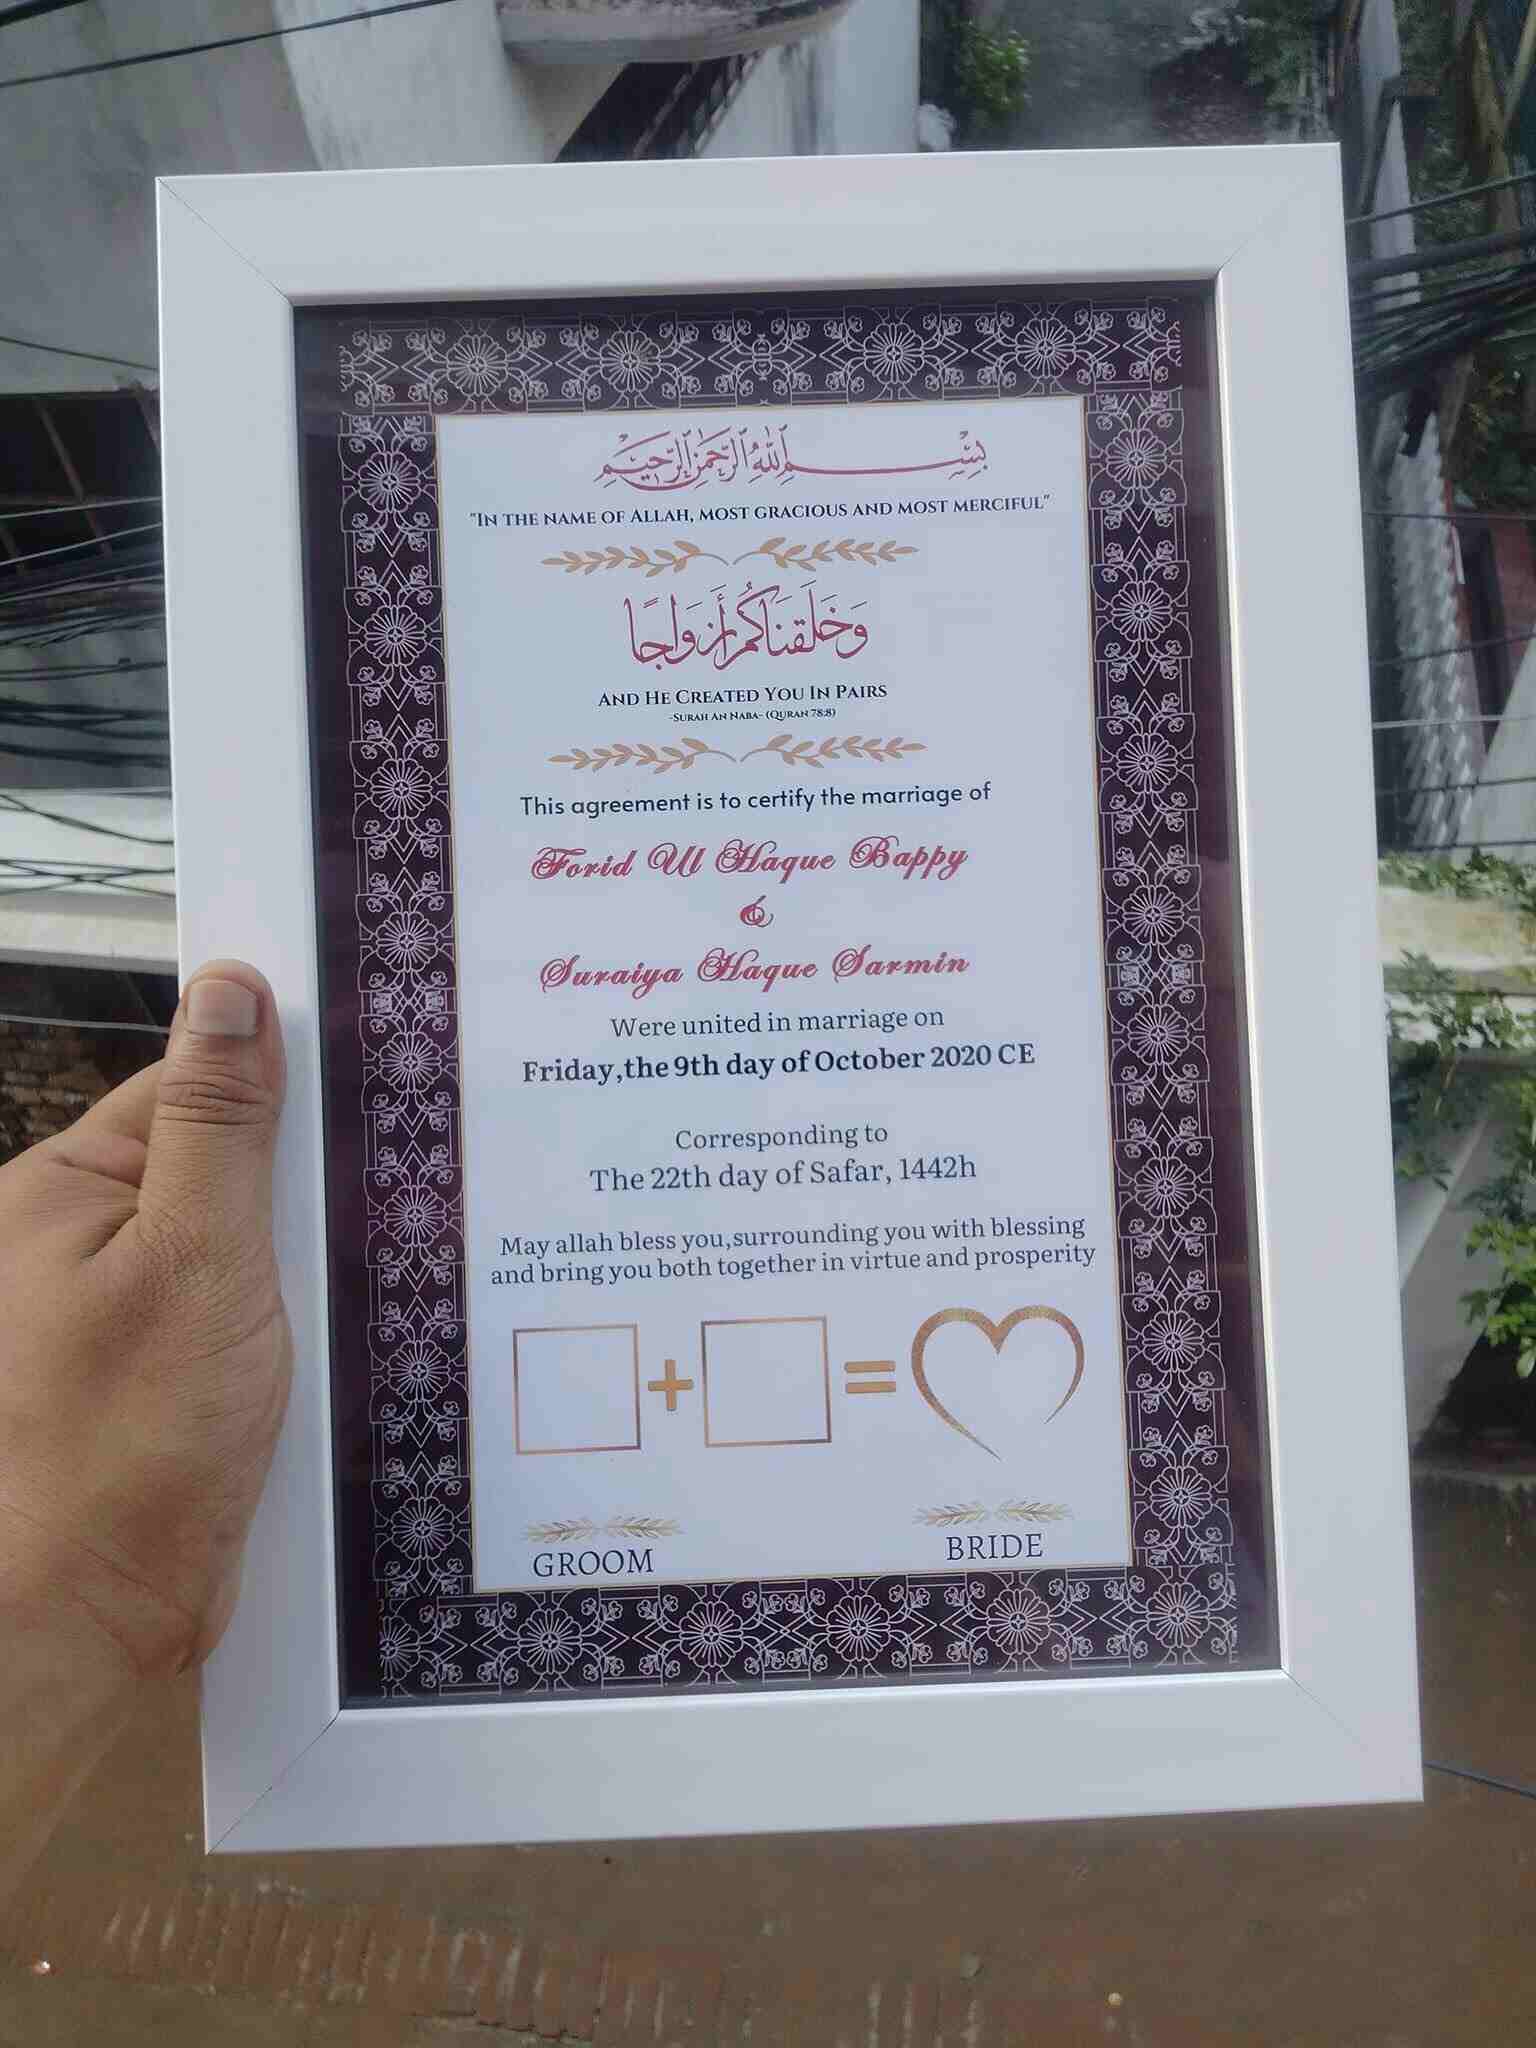 بِسْمِ اللَّهِ الرَّحْمَٰنِ الرَّحِيمِ
"In the name of Allah, most gracious and most merciful"
وَخَلَقْنَاكُمْ أَزْوَاجًا
And He Created You In Pairs
-Surah An Naba- (Quran 78:8)
This agreement is to certify the marriage of
Forid Ul Haque Bappy
&
Suraiya Haque Sarmin
Were united in marriage on
Friday,the 9th day of October 2020 CE
Corresponding to
The 22th day of Safar, 1442h
May allah bless you,surrounding you with blessing
and bring you both together in virtue and prosperity
+ =
GROOM BRIDE